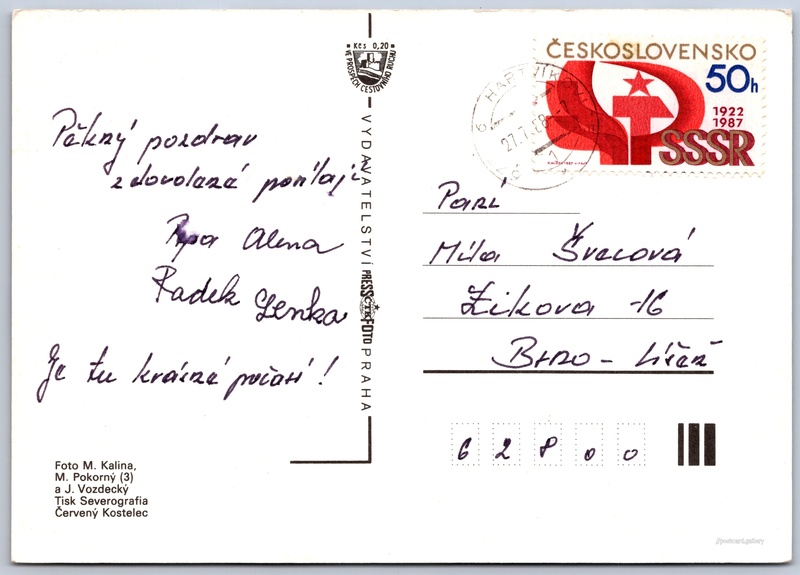 Pěkný pozdrav
z dovolené posílají
Pepa Alena
Radek Lenka
Je tu krásné počasí!
Foto M. Kalina,
M. Pokorný (3)
a J. Vozdecký
Tisk Severografia
Červený Kostelec
Kčs 0,20
VE PROSPĚCH CESTOVNÍHO RUCHU
VYDAVATELSTVÍ PRESSFOTO PRAHA
ČTK
ČESKOSLOVENSKO
50h
1922
1987
SSSR
27.7.88
Paní
Míla Švecová
Zikova 16
Brno - Líšeň
62800